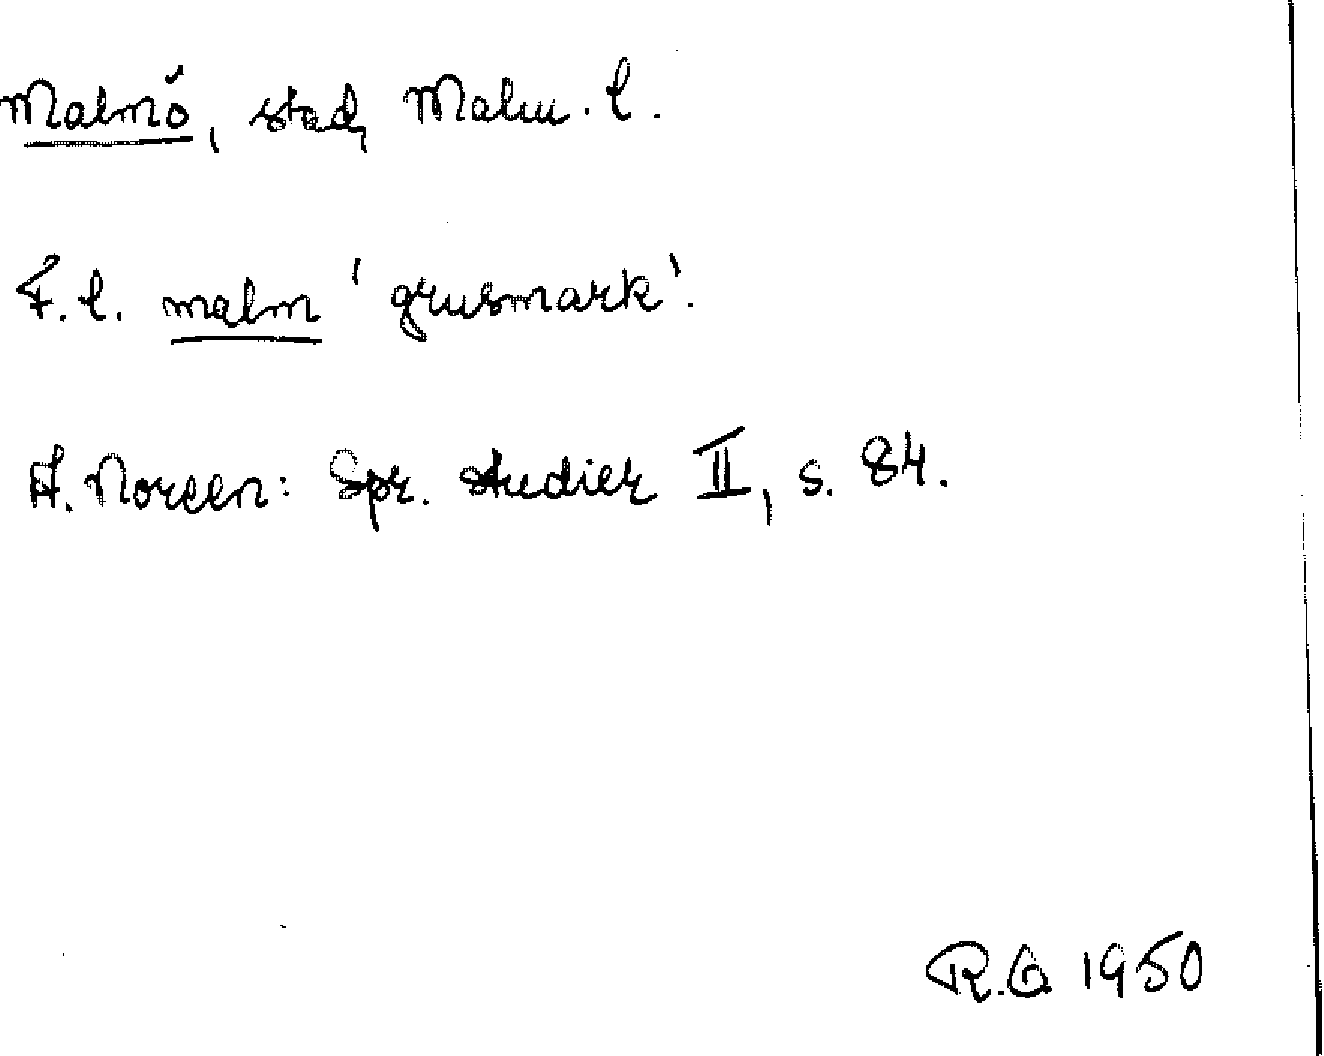 Malmö, stad, Malm. l.
F. l. malm 'grusmark'.
A. Noreen: Spr. studier II, s. 84.
R.G 1950